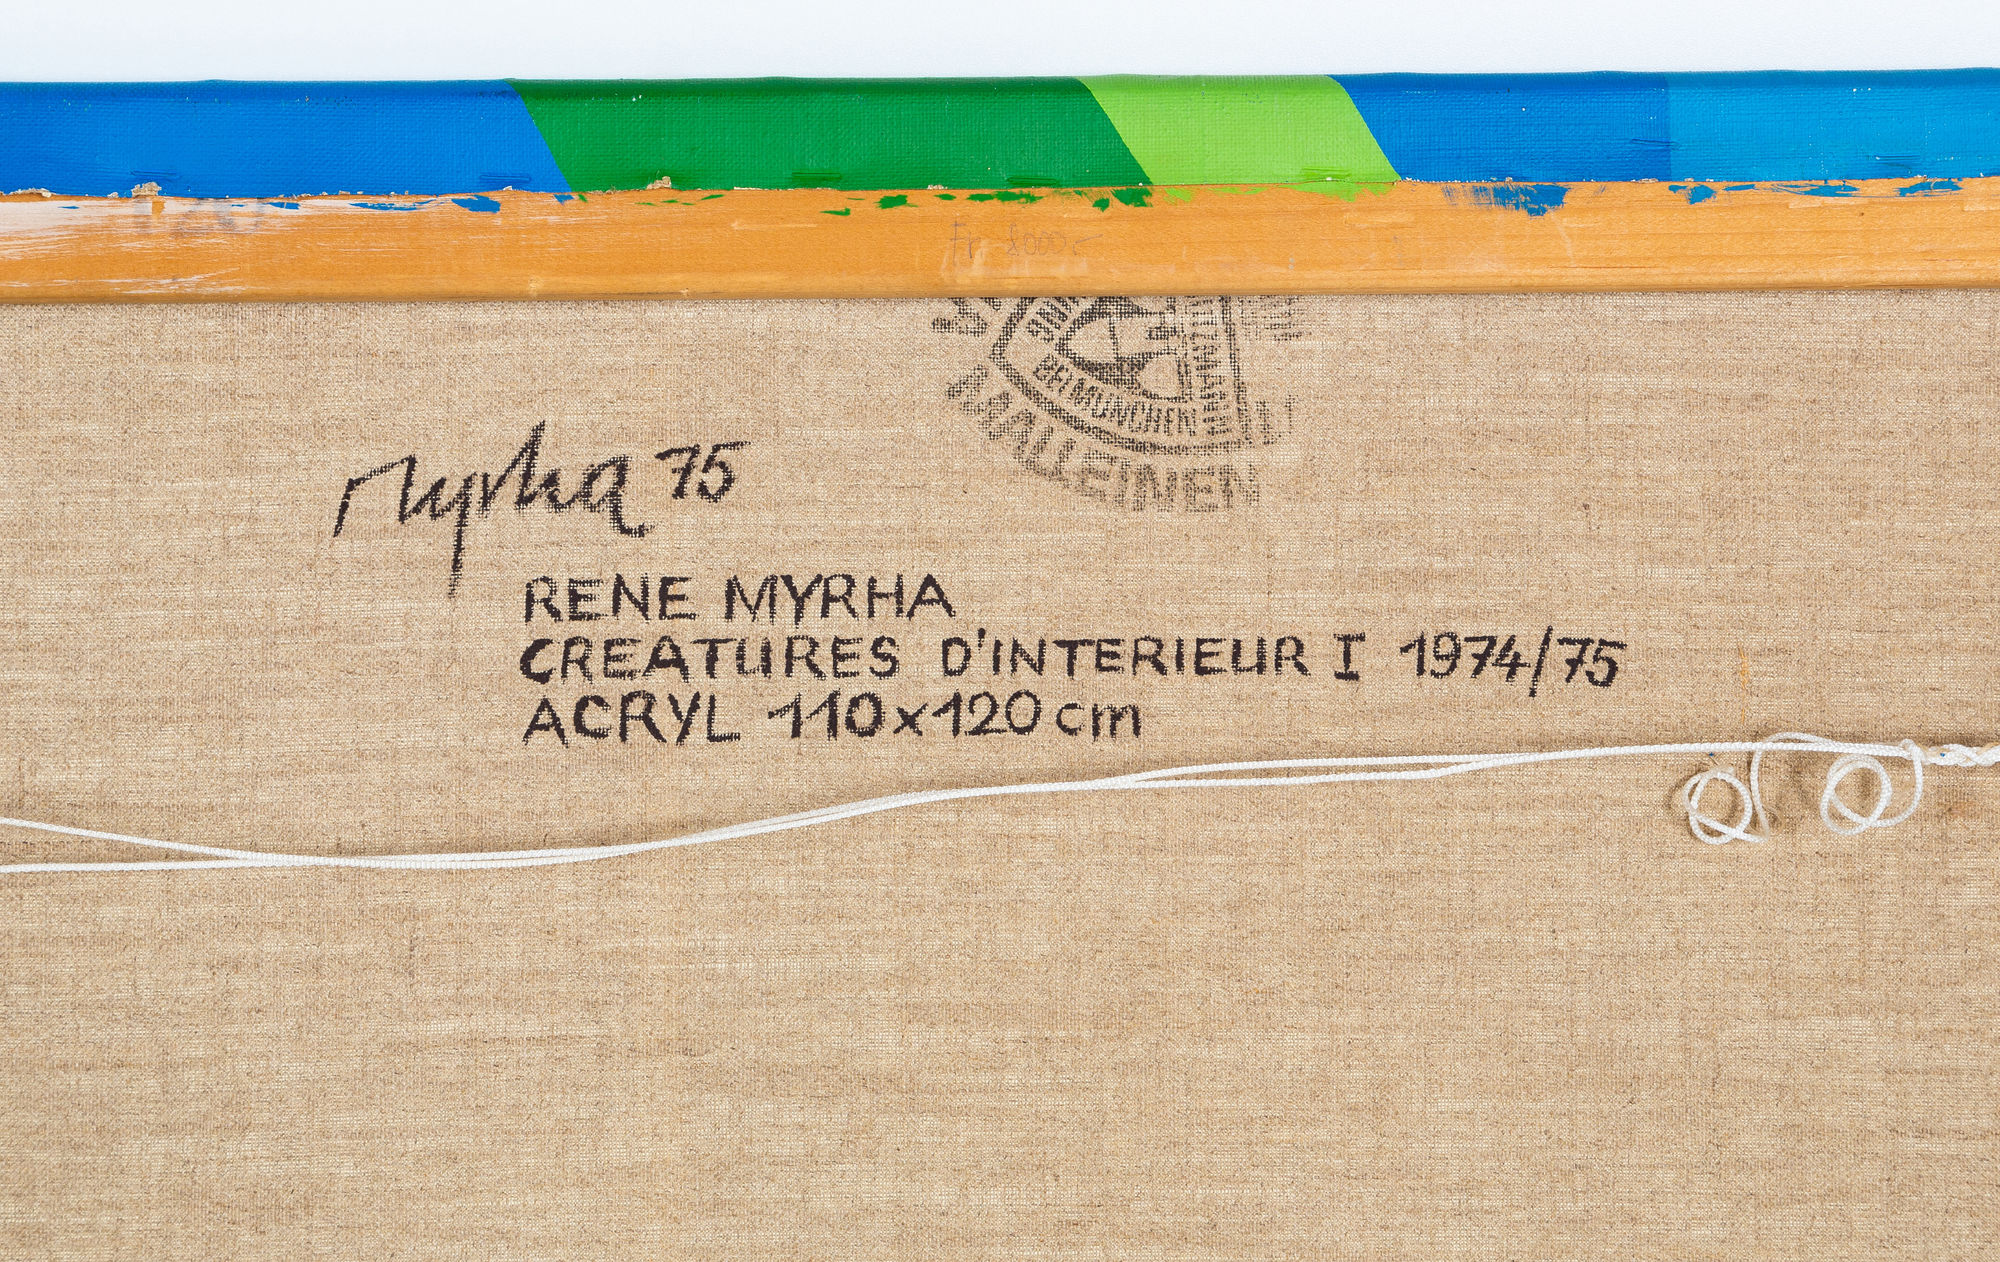 Fr 8000.-
BEI MÜNCHEN
REINLEINEN
Myrha 75
RENE MYRHA
CREATURES D'INTERIEUR I 1974/75
ACRYL 110x120 cm